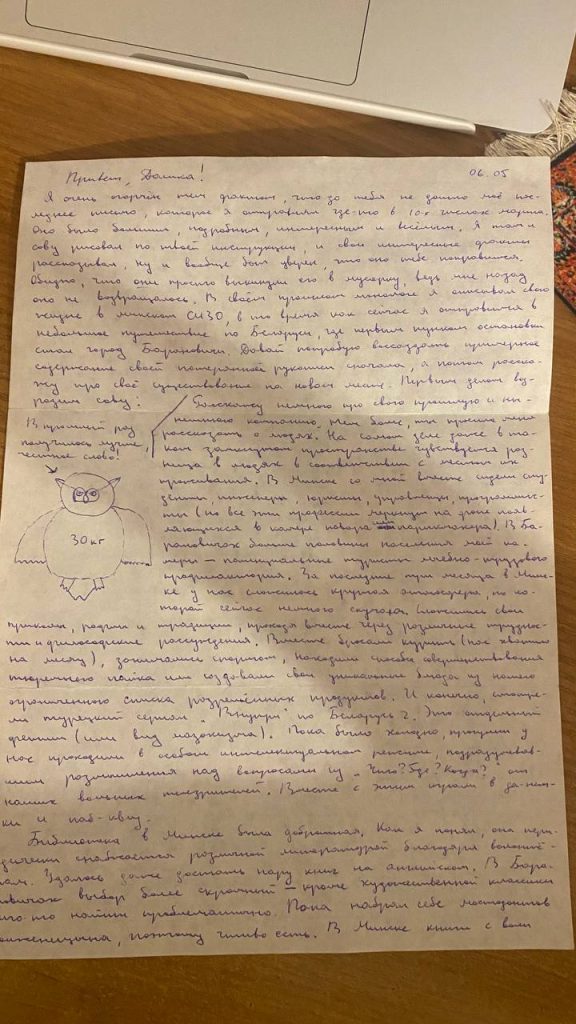 Привет, Далика!
06.05
Я очень огорчён тем фактом, что до тебя не дошло моё пос-
леднее письмо, которое я отправлял где-то в 10-х числах марта.
Оно было большим, подробным, интересным и весёлым. Я там и
сову рисовал по твоей инструкции, и свои интересные факты
рассказывал. Ну и вообще был уверен, что оно тебе понравится.
Обидно, что они просто выкинули его в мусорку, ведь мне назад
оно не возвращалось. В своём прошлом монологе я описывал своё
житие в минском СИЗО, в то время как сейчас я отправился в
небольшое путешествие по Беларуси, где первым пунктом остановки
стал город Барановичи. Давай попробую воссоздать примерное
содержание своей потерянной рукописи сначала, а потом расска-
жу про своё существование на новом месте. Первым делом воз-
родим сову!
В прошлый раз
получилось лучше,
честное слово!
30 кг
Расскажу немного про свою прошлую и ны-
нешнюю компанию, тем более, ты просила меня
рассказать о людях. На самом деле даже в та-
ком замкнутом пространстве чувствуется раз-
ница в людях в соответствии с местом их
проживания. В Минске со мной вместе сидели сту-
денты, инженеры, юристы, управленцы, программис-
ты (но все эти профессии меркнут на фоне появ-
ляющихся в камере повара и парикмахера). В Ба-
рановичах больше половины населения моей ка-
меры – потенциальные туристы лечебно-трудового
профилактория. За последние три месяца в Минс-
ке у нас сложилась крутая атмосфера, по ко-
торой сейчас немного скучаю. Сложились свои
приколы, радости и традиции, проходя вместе через различные труднос-
ти и философские рассуждения. Вместе бросали курить (нас хватило
на месяц), занимались спортом, находили способы совершенствования
тюремного пайка или создавали свои уникальные блюда из малого
ограниченного списка разрешённых продуктов. И конечно, смотре-
ли турецкий сериал „Внутри" по Беларусь 2. Это отдельный
(или вид мазохизма). Пока было холодно, прогулки у
нас проходили в особом интеллектуальном режиме, подразумевав-
шем размышления над вопросами из „Что? Где? Когда?" от
наших вольных . Вместе с этим играли в да-нет-
ки и паб-квиз.
Библиотека в Минске была добротная. Как я понял, она пери-
одически снабжается различной литературой благодаря волонтё-
рам. Удалось даже достать пару книг на английском. В Бара-
новичах выбор более скромный – кроме художественной классики
что-то найти проблематично. Пока набрал себе мастодонтов
, поэтому чтиво есть. В Минске книги с воли